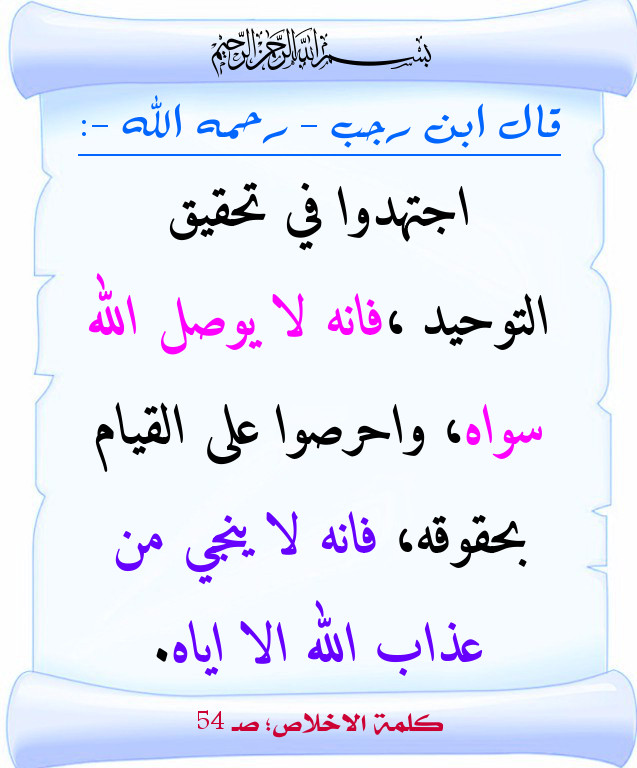 بسم الله الرحمن الرحيم
قال ابن رجب - رحمه الله -:
اجتهدوا في تحقيق
التوحيد ،فانه لا يوصل الله
سواه، واحرصوا على القيام
بحقوقه، فانه لا ينجي من
عذاب الله الا اياه.
كلمة الاخلاص؛ صـ 54